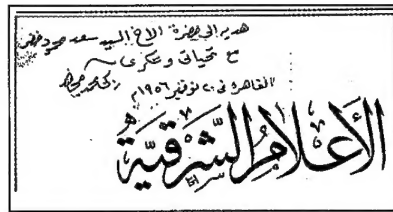 هديه إلى حضرة الاخ السيد سعد محمود خضر
مع تحياتى وشكرى
القاهره فى ٢٠ نوفمبر ١٩٥٦ زكى محمد مجاهد
الأعلام الشرقية